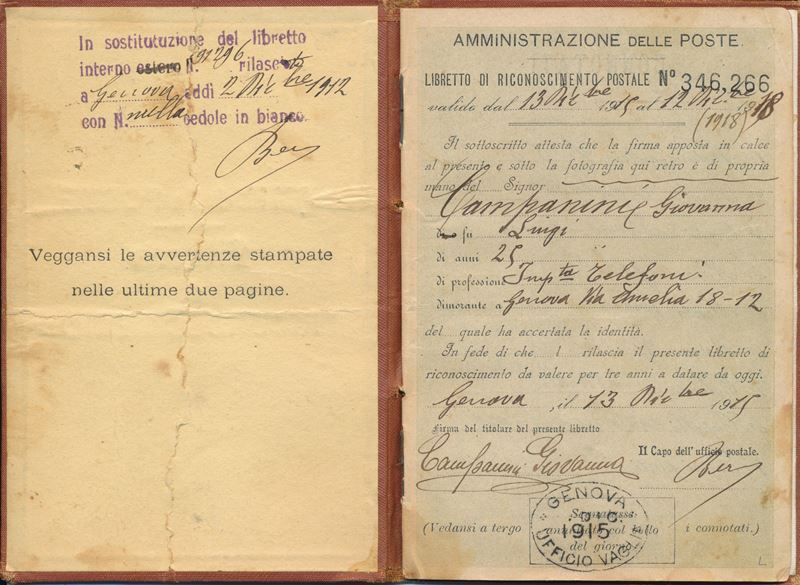 In sostitutuzione del libretto
interno estero N. 31296 rilasciato
a Genova addì 2 Dicbre 1912
con N. nulla cedole in bianco.
Veggansi le avvertenze stampate
nelle ultime due pagine.
AMMINISTRAZIONE DELLE POSTE.
LIBRETTO DI RICONOSCIMENTO POSTALE Nº 346,266
valido dal 13 Dicbre 1915 al 12 Dicbre 1918
(1918)
Il sottoscritto attesta che la firma apposta in calce
al presente e sotto la fotografia qui retro è di propria
mano del Signor
Campanini Giovanna
di fu Luigi
di anni 25
di professione Impta Telefoni
dimorante a Genova Via Amelia 18-12
del quale ha accertata la identità.
In fede di che l rilascia il presente libretto di
riconoscimento da valere per tre anni a datare da oggi.
Genova, il 13 Dicbre 1915
Firma del titolare del presente libretto
Il Capo dell'ufficio postale.
Campanini Giovanna
GENOVA
915
UFFICIO VAGLIA
(Vedansi a tergo i connotati.)
annullato col bollo
del giorno
L